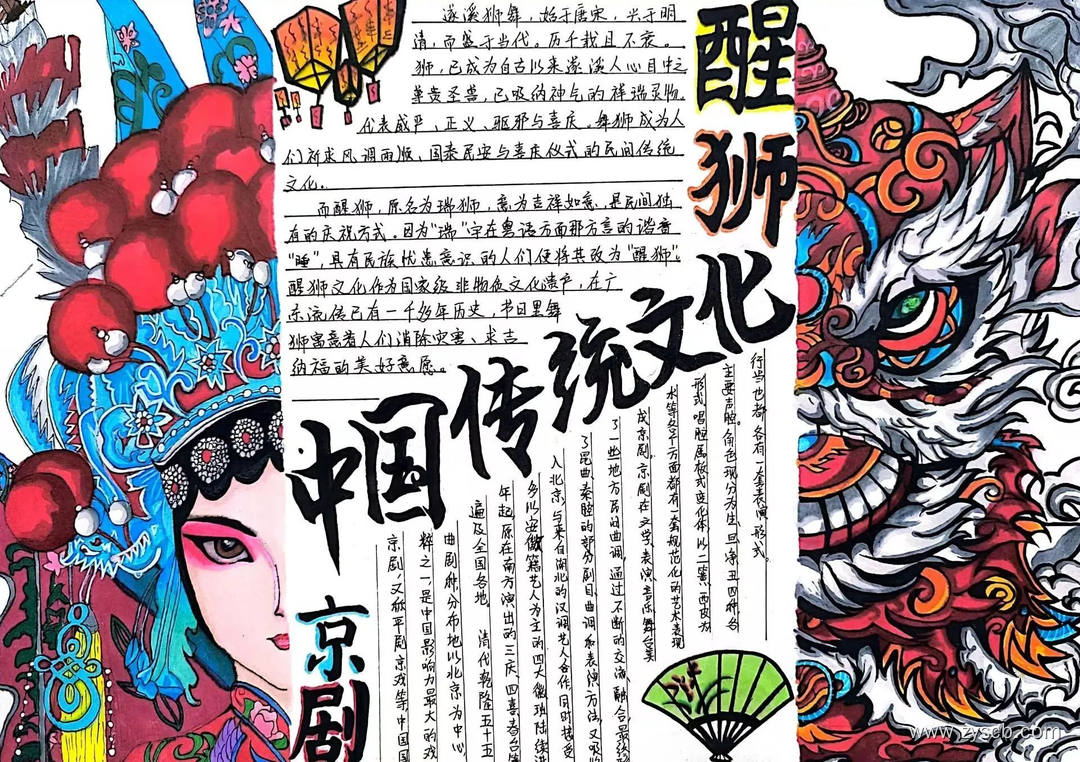 醒狮
遂溪狮舞，始于唐宋，兴于明
清，而盛于当代。历千载且不衰。
狮，已成为自古以来遂溪人心目中之
尊贵圣兽，已吸纳神气的祥瑞灵物
代表威严、正义、驱邪与喜庆。舞狮成为人
们祈求风调雨顺，国泰民安与喜庆仪式的民间传统
文化。
而醒狮，原名为瑞狮，意为吉祥如意，是民间独
有的庆祝方式。因为"瑞"字在粤语方面那方言的谐音
"睡"，具有民族忧患意识的人们便将其改为"醒狮"。
醒狮文化作为国家级非物质文化遗产，在广
东流传已有一千多年历史，节日里舞
狮寓意着人们消除灾害、求吉
纳福的美好意愿。
中国传统文化
京剧
京剧，又称平剧、京戏等，中国国
粹之一，是中国影响力最大的戏
曲剧种，分布地以北京为中心，
遍及全国各地 清代乾隆五十五
年起，原在南方演出的三庆、四喜、春台等
多以安徽籍艺人为主的四大徽班陆续进
入北京，与来自湖北的汉调艺人合作，同时接受
了昆曲、秦腔的部分剧目、曲调和表演方法，又吸
了一些地方民间曲调，通过不断的交流、融合，最终
成京剧。京剧在文学、表演、音乐、舞台美
术等各个方面都有一套规范化的艺术表现
形式，唱腔属板式变化体，以二簧、西皮为
主要声腔。角色现分为生、旦、净、丑四种，各
行当也都各有一套表演形式。
www.zyscb.com